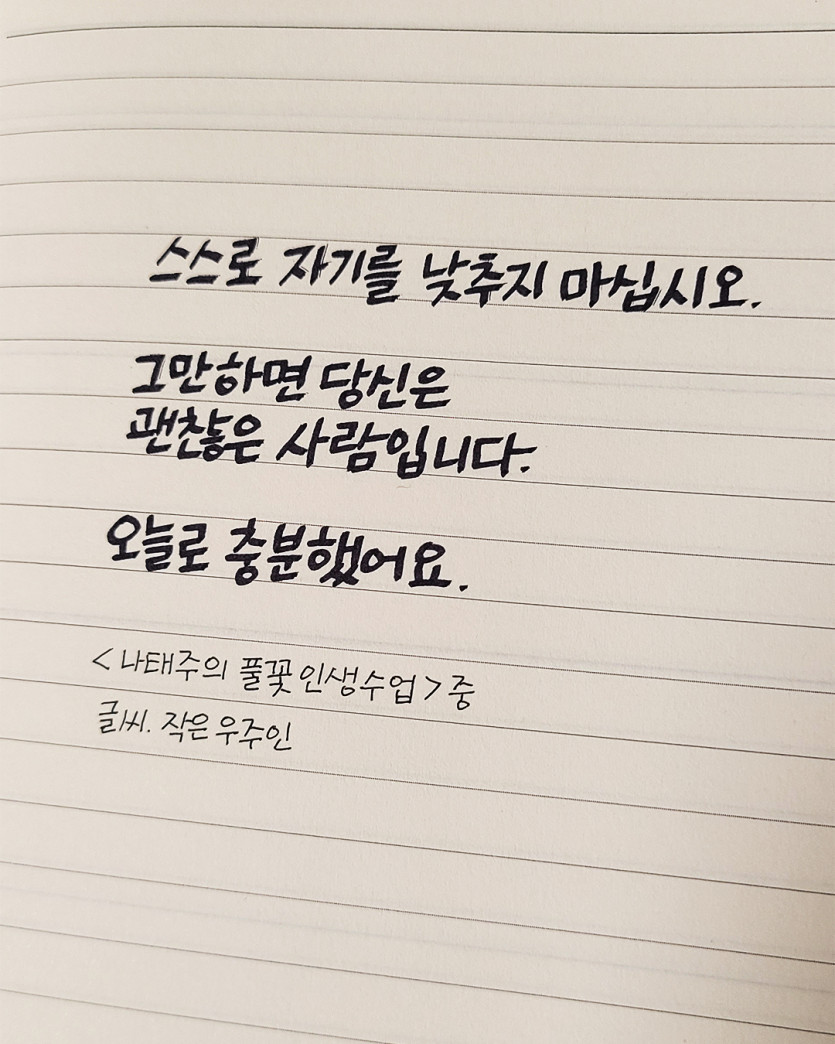 스스로 자기를 낮추지 마십시오.
그만하면 당신은
괜찮은 사람입니다.
오늘로 충분했어요.
<나태주의 풀꽃 인생수업> 중
글씨. 작은 우주인